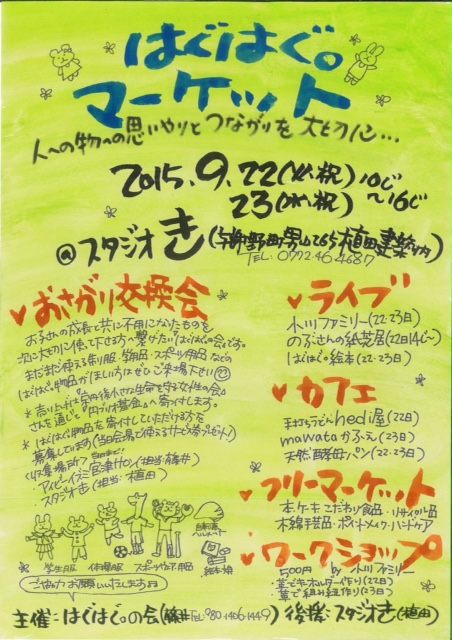 はぐはぐ。
マーケット
人への物への思いやりとつながりを大切に…
2015.9.22(火・祝)10じ
23(水・祝)~16じ
@スタジオき(与謝野町男山265植田建築内)
TEL:0772 46 4687
♥おさがり交換会
お子さんの成長と共に不用になったものを
次に大切に使って下さる方へ繋がたい"はぐはぐの会"です。
まだまだ使える制服・学用品・スポーツ用品などの
はぐはぐ。物品がほしい方はぜひご来場下さい
さんを通じて『円ブリオ基金』へ寄付します。
*はぐはぐ物品を寄付していただける方を
募集しています
・スタジオき(担当:植田)
学生服 体操服 スポーツ少年用品
自転車ヘルメット
絵本・娘
ご協力お願いいたします
♥ライブ
小川ファミリー(22・23日)
のぶさんの紙芝居(22日14じ~)
はぐはぐ絵本(22・23日)
♥カフェ
手打ちうどんhedi屋(22日)
mawataかふぇ(23日)
天然酵母パン(22・23日)
♥フリーマーケット
本・ケーキ・こだわり食品・リサイクル品
木綿手芸品・ポイントメイク・ハンドケア
♥ワークショップ
500円 by 小川ファミリー
・葦でキーホルダー作り(22日)
・葦で組み紐作り(23日)
主催:はぐはぐ。の会(藤井TEL080-1406-1449) 後援:スタジオき(植田)